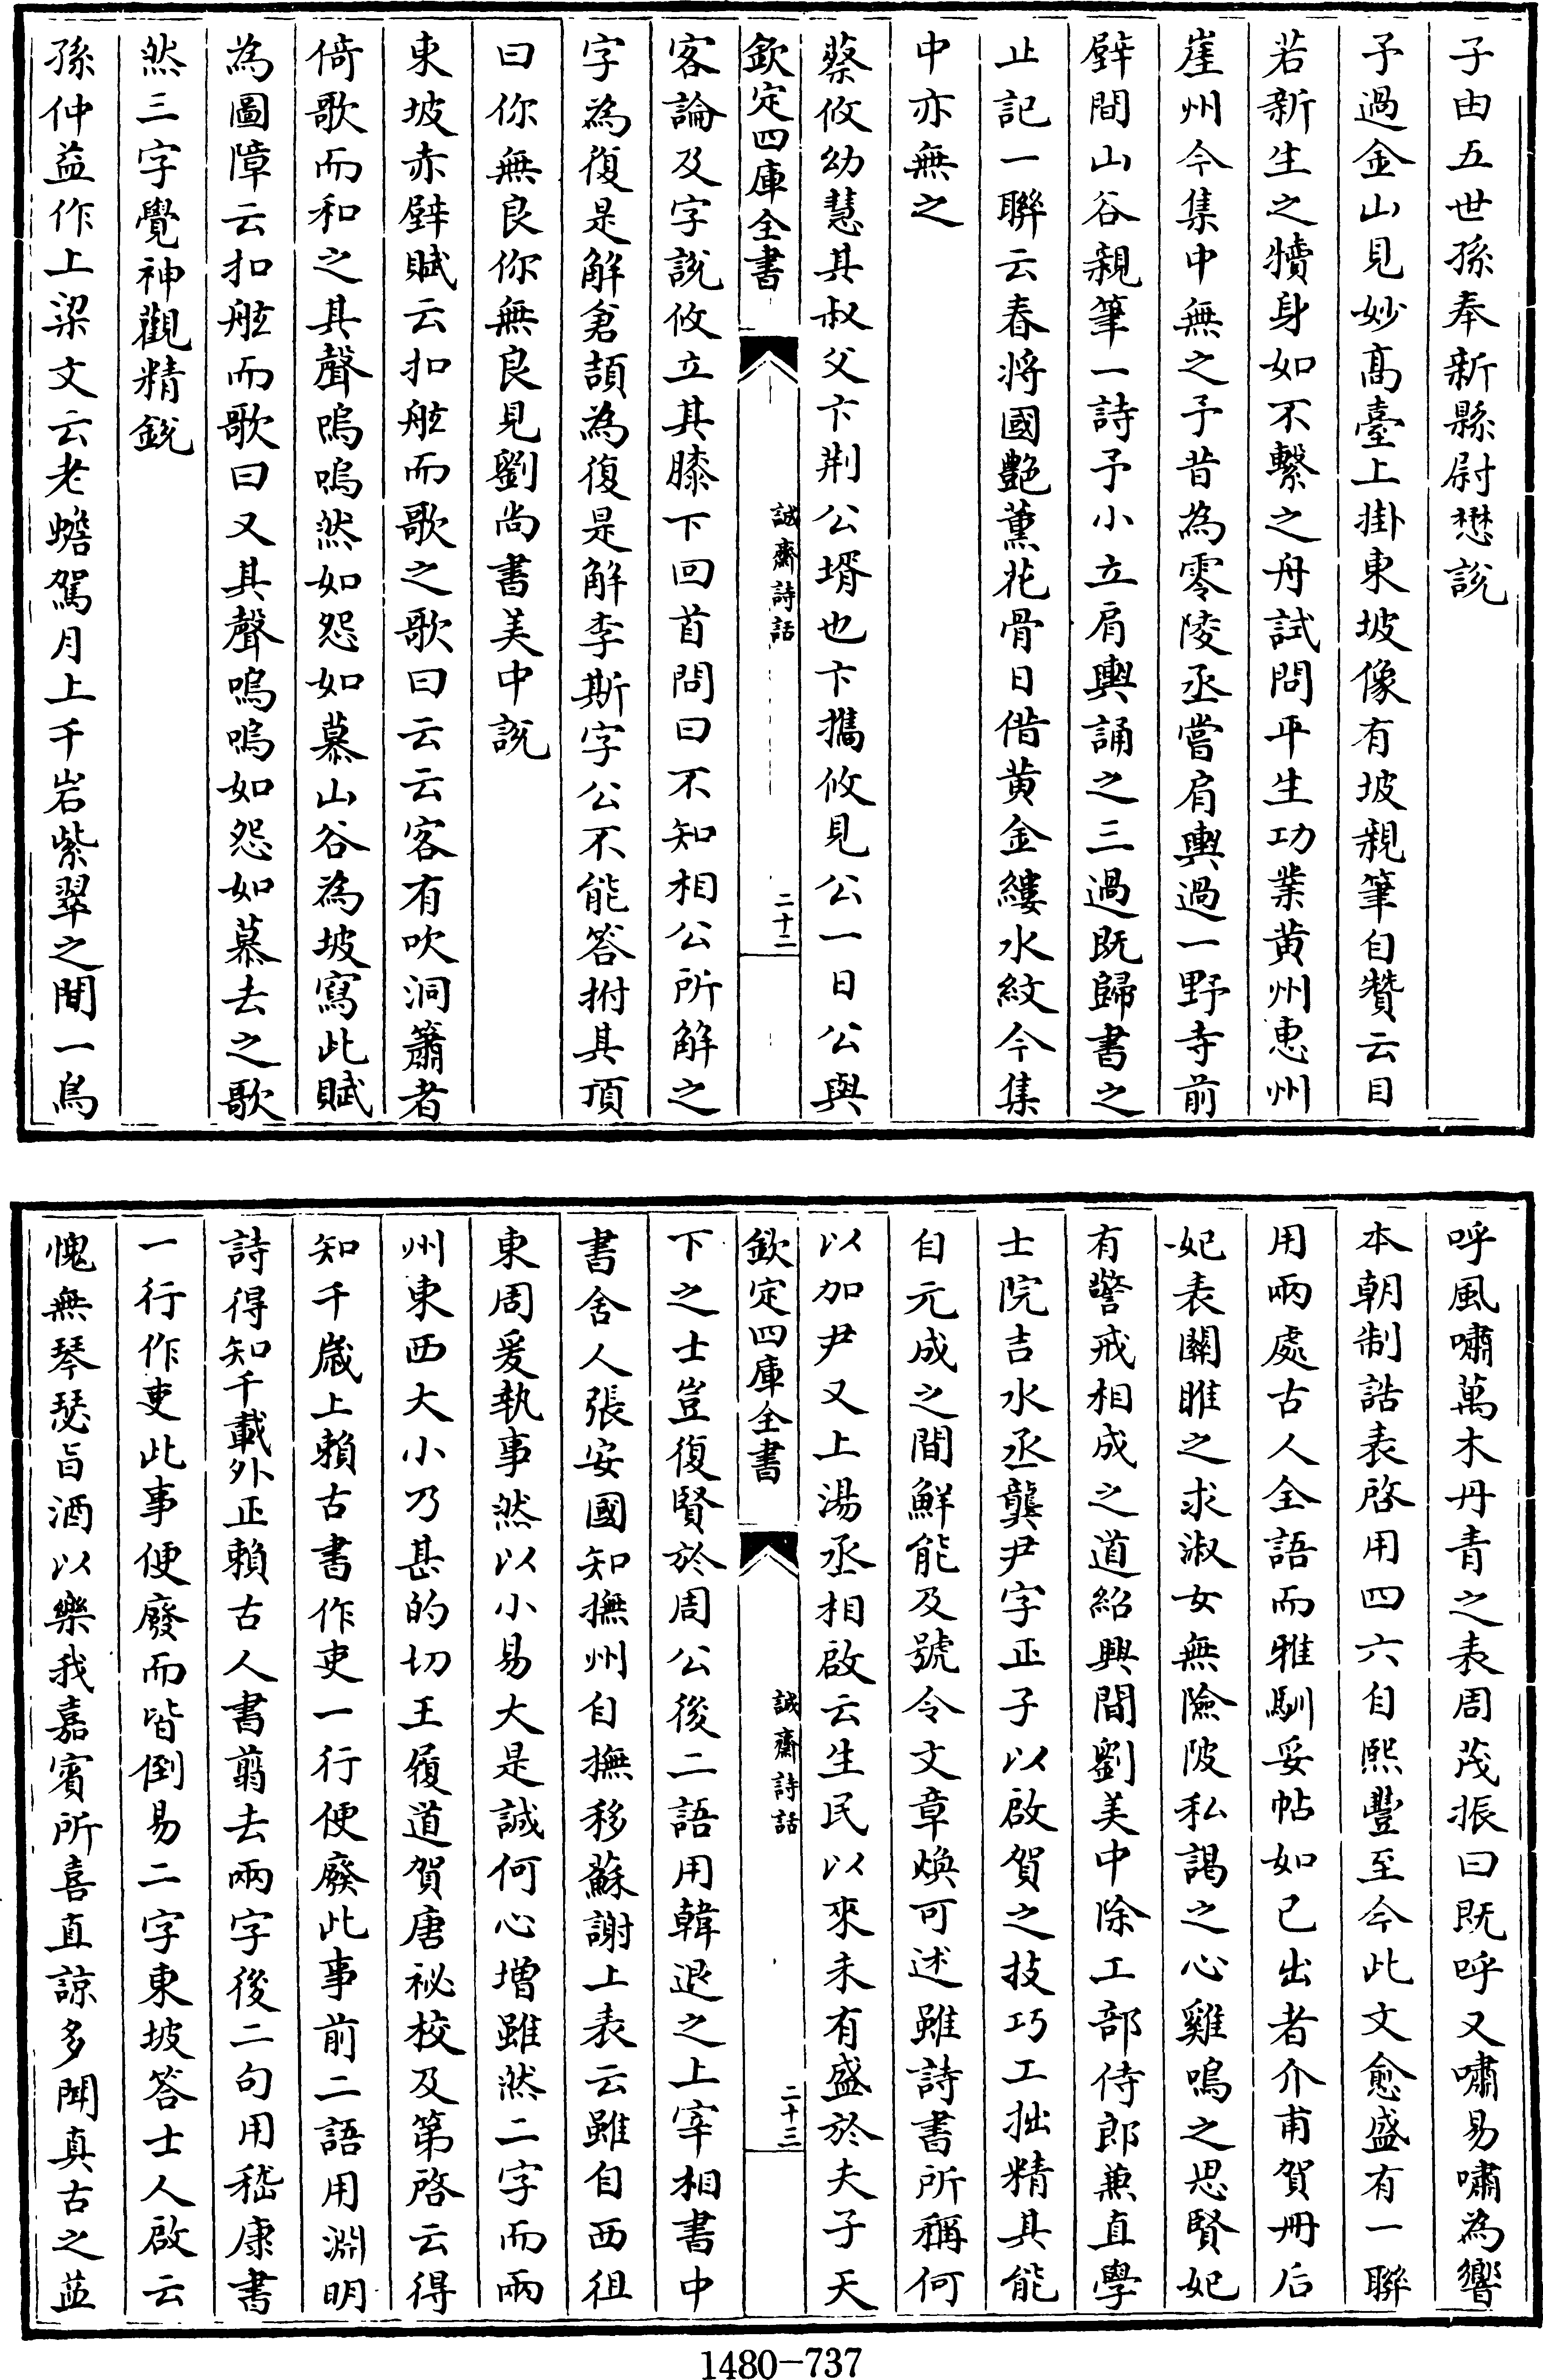 子由五世孫奉新縣尉懋説
予過金山見妙髙臺上掛東坡像有坡親筆自贊云目
若新生之犢身如不繫之舟試問平生功業黄州惠州
崖州今集中無之予昔為零陵丞嘗肩輿過一野寺前
壁間山谷親筆一詩予小立肩輿誦之三過既歸書之
止記一聯云春将國艶薫花骨日借黄金縷水紋今集
中亦無之
蔡攸幼慧其叔父卞荆公壻也卞攜攸見公一日公與
欽定四庫全書
誠齋詩話
二十二
客論及字説攸立其膝下回首問曰不知相公所解之
字為復是解倉頡為復是解李斯字公不能答拊其頂
曰你無良你無良見劉尚書美中説
東坡赤壁賦云扣舷而歌之歌曰云云客有吹洞簫者
倚歌而和之其聲嗚嗚然如怨如慕山谷為坡寫此賦
為圖障云扣舷而歌曰又其聲嗚嗚如怨如慕去之歌
然三字覺神觀精鋭
孫仲益作上梁文云老蟾駕月上千岩紫翠之間一鳥
呼風嘯萬木丹青之表周茂振曰既呼又嘯易嘯為響
本朝制誥表啓用四六自熙豐至今此文愈盛有一聯
用兩處古人全語而雅馴妥帖如己出者介甫賀册后
妃表關雎之求淑女無險陂私謁之心雞鳴之思賢妃
有警戒相成之道紹興間劉美中除工部侍郎兼直學
士院吉水丞龔尹字正子以啟賀之技巧工拙精其能
自元成之間鮮能及號令文章煥可述雖詩書所稱何
以加尹又上湯丞相啟云生民以來未有盛於夫子天
欽定四庫全書
誠齋詩話
二十三
下之士豈復賢於周公後二語用韓退之上宰相書中
書舍人張安國知撫州自撫移蘇謝上表云雖自西徂
東周爰執事然以小易大是誠何心增雖然二字而兩
州東西大小乃甚的切王履道賀唐祕校及第啓云得
知千嵗上賴古書作吏一行便廢此事前二語用淵明
詩得知千載外正賴古人書翦去兩字後二句用嵇康書
一行作吏此事便廢而皆倒易二字東坡答士人啟云
愧無琴瑟㫖酒以樂我嘉賓所喜直諒多聞真古之益
1480-737